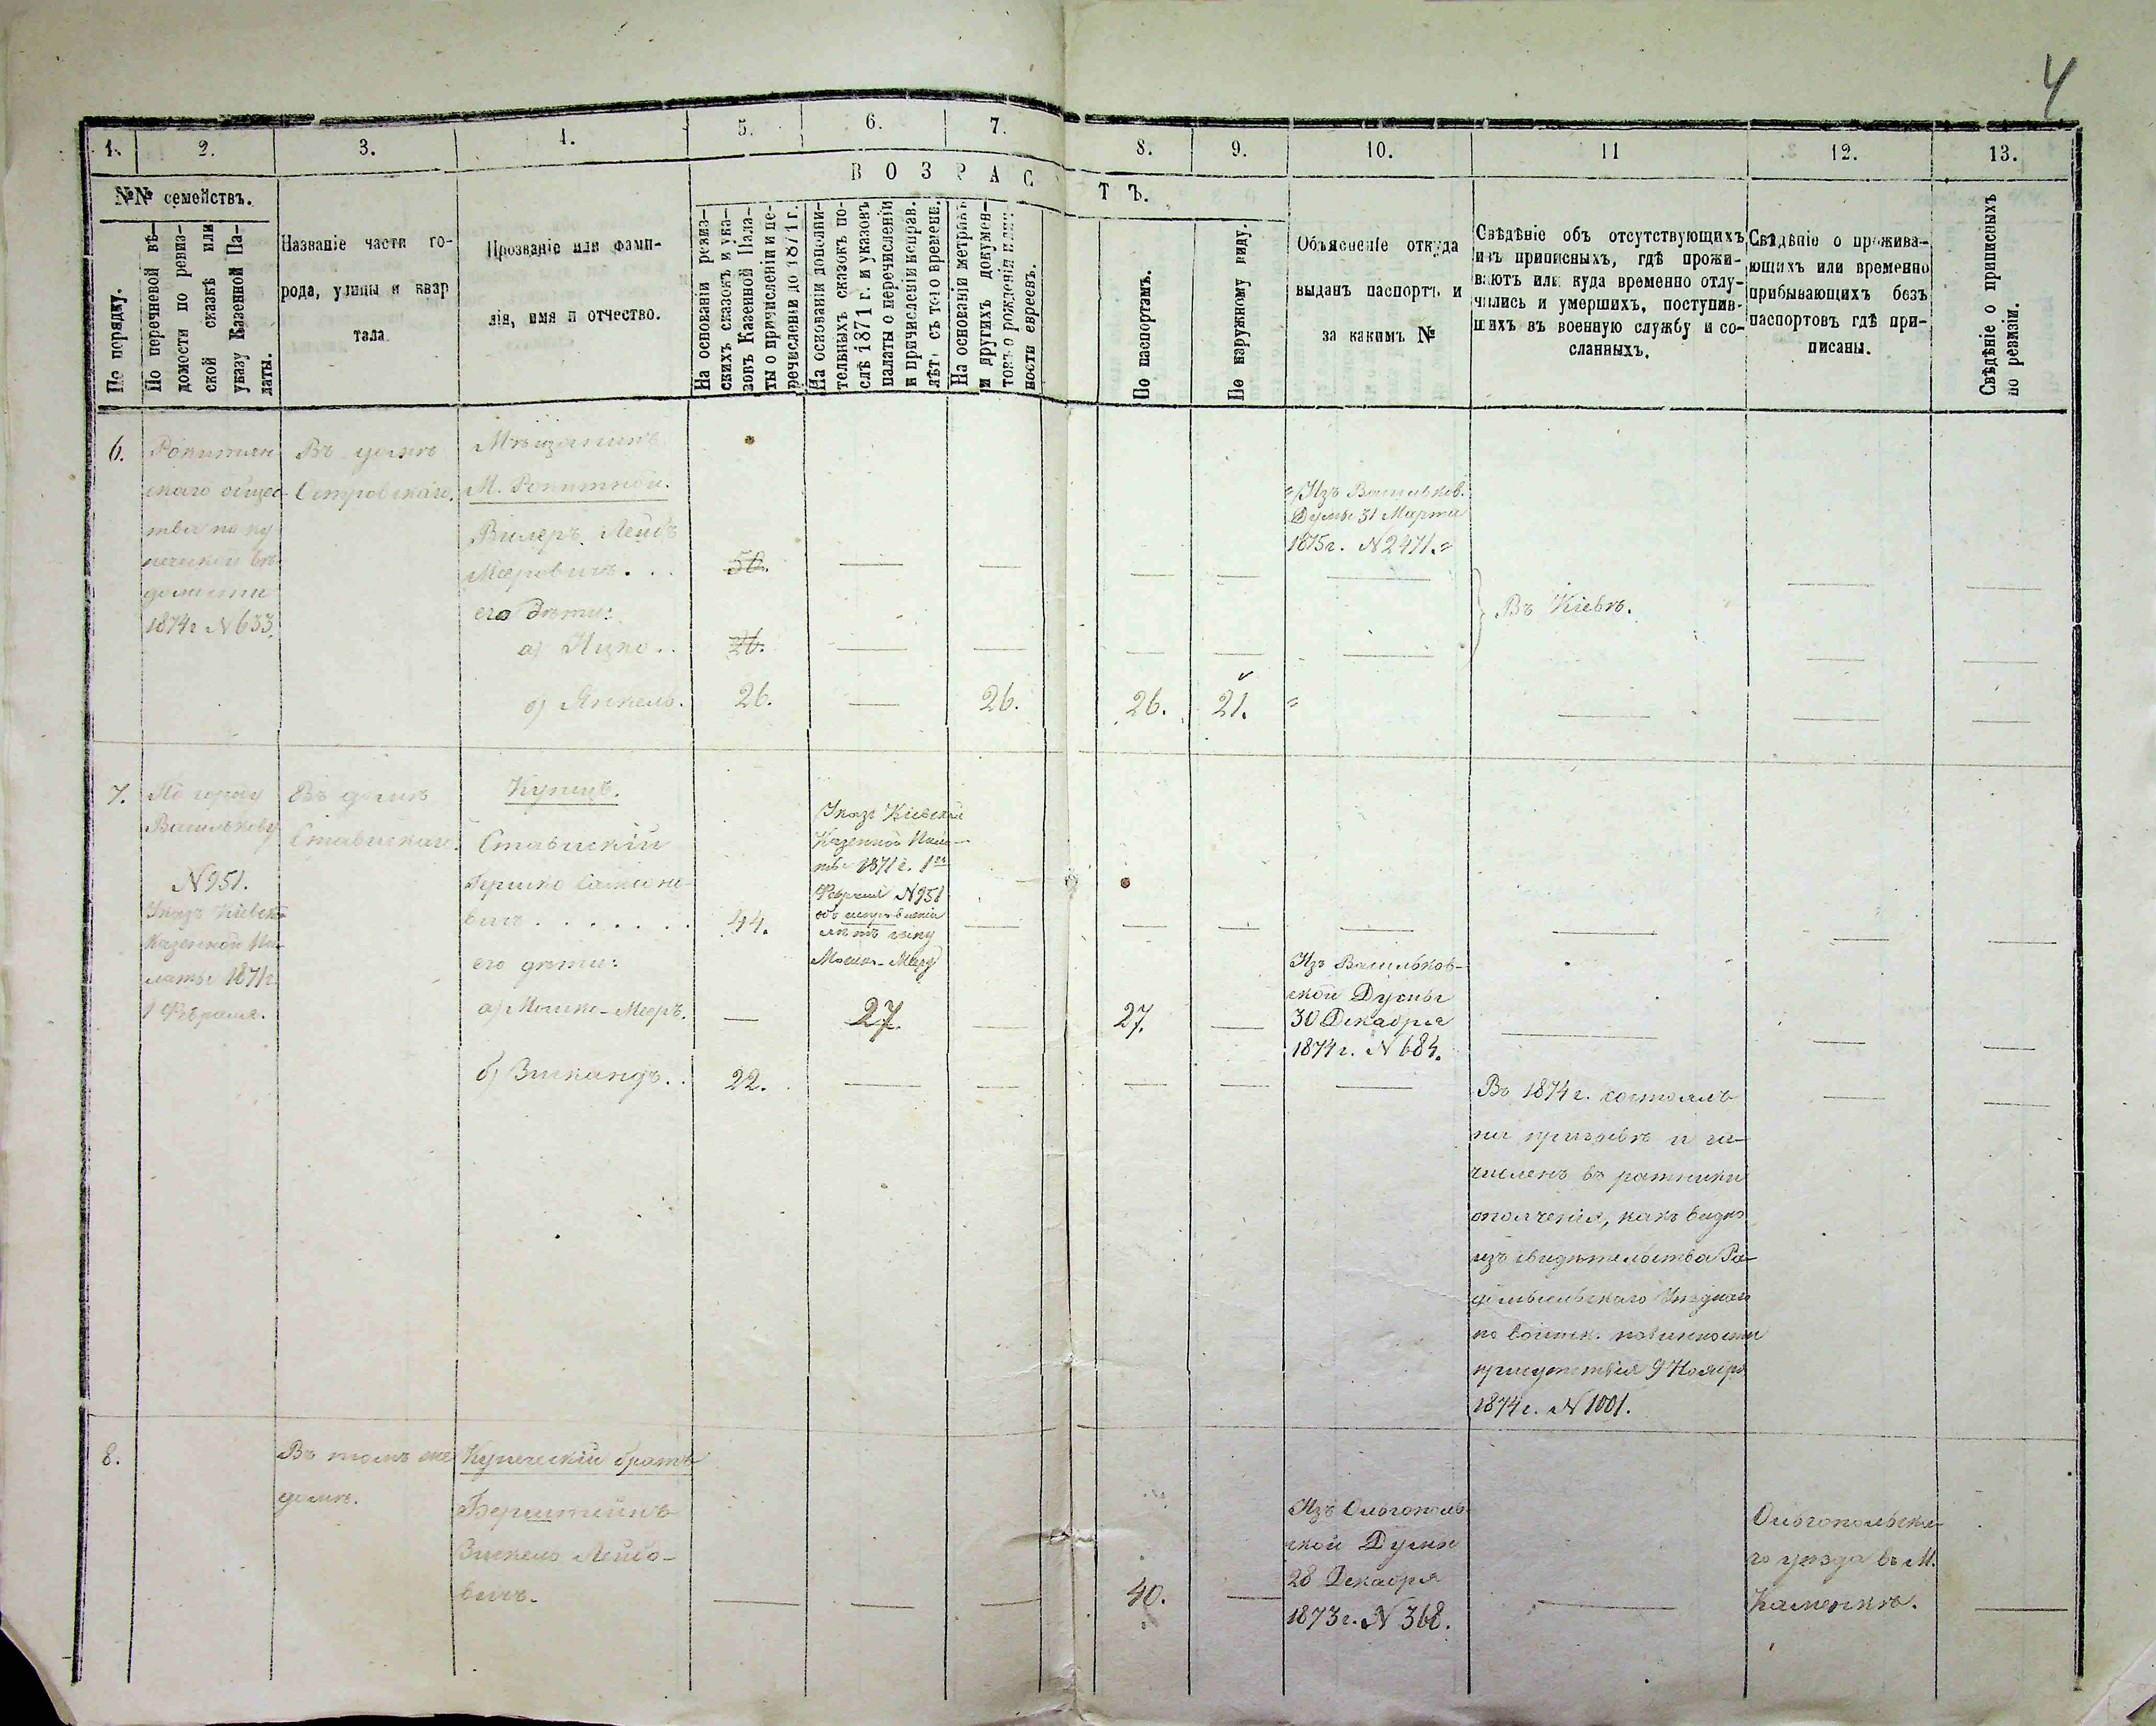 4
1.
2.
3.
4.
5.
6.
7.
8.
9.
10.
11
12.
13.
№№ семействъ.
ВОЗРАСТЪ.
По порядку.
По перечневой вѣ-
домости по ревиз-
ской сказкѣ или
указу Казенной Па-
латы.
Названіе части го-
рода, улицы и квар
тала
Прозваніе или фами-
лія, имя и отчество.
На основаніи ревиз-
скихъ сказокъ и ука-
зовъ Казенной Пала-
ты о причисленіи и пе-
речисленіи до 1871 г.
На основаніи дополни-
тельныхъ сказокъ по-
слѣ 1871 г. и указовъ
палаты о перечисленіи
и причисленіи исправ.
лѣтъ съ того времени.
На основаніи метрикъ
и другихъ докумен-
товъ о рожденіи
ности евреевъ.
По паспортамъ.
По наружному виду.
Объясненіе откуда
выданъ паспортъ и
за какимъ №
Свѣдѣніе объ отсутствующихъ
изъ приписныхъ, гдѣ прожи-
ваютъ или куда временно отлу-
чились и умершихъ, поступив-
шихъ въ военную службу и со-
сланныхъ.
Свѣдѣніе о прожива-
ющихъ или временно
прибывающихъ безъ
паспортовъ гдѣ при-
писаны.
Свѣдѣніе о приписныхъ
по ревизіи.
6.
Рокитнян
скаго общес-
тва по ку
печеской вѣ-
домости
1874 г №633.
Въ домѣ
Островскаго.
Мѣщанинъ
М. Рокитной.
Вилеръ Лейбъ
Мееровичъ. . .
его дѣти:
а) Ицко . .
б) Янкель.
50.
26.
26.
26.
26.
21.
Изъ Васильков.
Думы 31 Марта
1875 г. №2471.
Въ Кіевѣ.
7.
По городу
Василькову
№951.
Указъ Кіевск.
Казенной Па-
латы 1871 г
1 Февраля.
Въ домѣ
Ставискаго.
Купецъ.
Ставискій
Гершко Самсоно-
вичъ . . . . . .
его дѣти:
а) Мошко-Мееръ.
б) Зискандъ. .
44.
22.
Указъ Кіевской
Казенной Пала-
ты 1871 г. 1го
Февраля №951
объ исправленіи
лѣтъ сыну
Мошко-Меер
27.
27.
Изъ Васильков-
ской Думы
30 Декабря
1874 г. №684.
Въ 1874 г. состоялъ
на призывѣ и за-
численъ въ ратники
ополченія, какъ видно
изъ свидѣтельства Ра-
домысльскаго Уѣзднаго
по воинск. повинности
присутствія 9 Ноября
1874 г. №1001.
8.
Въ томъ же
домѣ.
Купеческій братъ
Бернштейнъ
Зискель Лейбо-
вичъ.
40.
Изъ Ольгополь-
ской Думы
28 Декабря
1873 г. №368.
Ольгопольска-
го уѣзда въ М.
Каменкѣ.